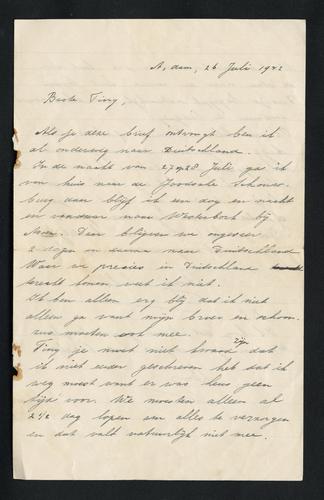 A, dam, 26 Juli 1942
Beste Tiny,
Als je deze brief ontvangt ben ik
al onderweg naar Duitschland.
In de nacht van 27 op 28 Juli ga ik
van huis naar de Joodsche Schouw-
burg daar blijf ik een dag en nacht
en vandaar naar Westerbork bij
Assen. Daar blijven we ongeveer
2 dagen en daarna naar Duitschland
Waar we precies in Duitschland
terecht komen weet ik niet.
Ik ben alleen erg blij dat ik niet
alleen ga want mijn broer en schoon-
zus moeten ook mee.
Tiny je moet niet kwaad zijn dat
ik niet eerder geschreven heb dat ik
weg moest want er was heus geen
tijd voor. We moesten alleen al
2½ dag lopen om alles te verzorgen
en dat valt natuurlijk niet mee.